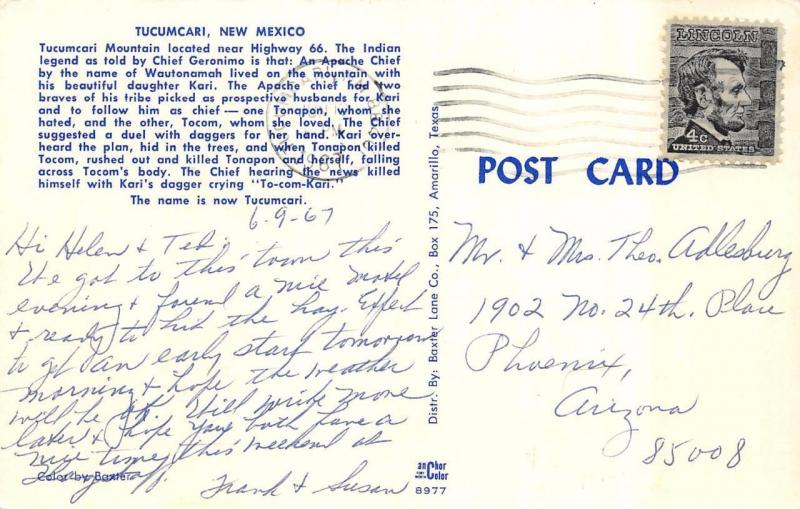 TUCUMCARI, NEW MEXICO
Tucumcari Mountain located near Highway 66. The Indian
legend as told by Chief Geronimo is that: An Apache Chief
by the name of Wautonamah lived on the mountain with
his beautiful daughter Kari. The Apache chief had two
braves of his tribe picked as prospective husbands for Kari
and to follow him as chief — one Tonapon, whom she
hated, and the other, Tocom, whom she loved. The Chief
suggested a duel with daggers for her hand. Kari over-
heard the plan, hid in the trees, and when Tonapon killed
Tocom, rushed out and killed Tonapon and herself, falling
across Tocom's body. The Chief hearing the news killed
himself with Kari's dagger crying "To-com-Kari."
The name is now Tucumcari.
6-9-67
Hi Helen & Ted:
We got to this town this
evening & found a nice motel
& ready to hit the hay. Expect
to get an early start tomorrow
morning & hope the weather
will be ok. Will write more
later & hope you both have a
nice time this weekend at
Frank & Susan
Color by Baxter
Distr. By: Baxter Lane Co., Box 175, Amarillo, Texas
anChor
Color
8977
LINCOLN
4c
UNITED STATES
POST CARD
Mr. & Mrs. Theo. Adlesburg
1902 No. 24th. Place
Phoenix,
Arizona
85008